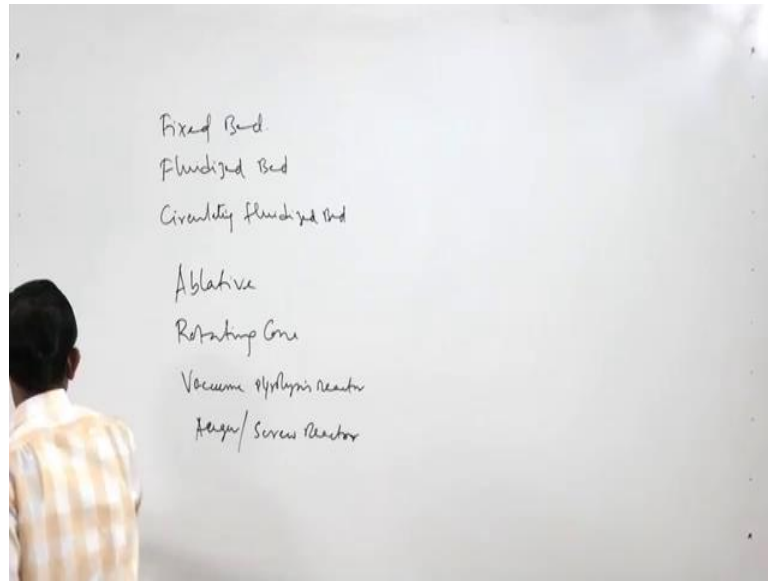 Fixed Bed.
Fluidized Bed
Circulating fluidized Bed
Ablative
Rotating Cone
Vacuume pyrolysis reactor
Auger/ Screw Reactor